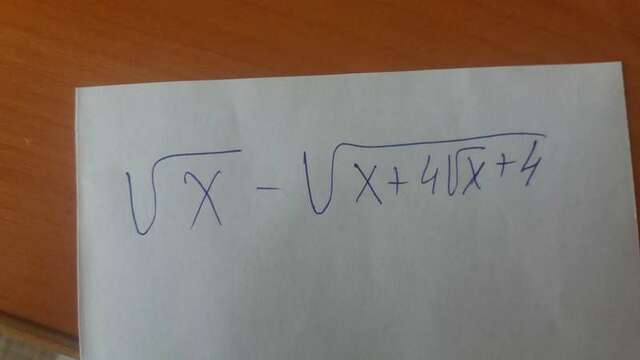 √x - √(x+4√x+4)